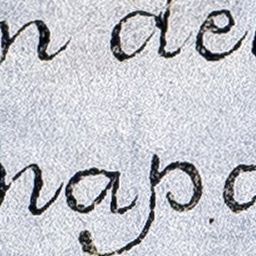 n de
nap.